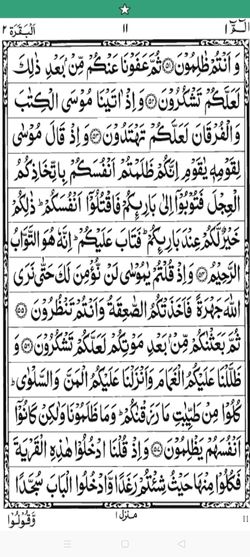 الٓمّٓ ١ ١١ اَلْبَقَرَة ٢
وَ اَنْتُمْ ظٰلِمُوْنَ ۝٥١ ثُمَّ عَفَوْنَا عَنْكُمْ مِّنْۢ بَعْدِ ذٰلِكَ
لَعَلَّكُمْ تَشْكُرُوْنَ ۝٥٢ وَ اِذْ اٰتَيْنَا مُوْسَى الْكِتٰبَ
وَ الْفُرْقَانَ لَعَلَّكُمْ تَهْتَدُوْنَ ۝٥٣ وَ اِذْ قَالَ مُوْسٰى
لِقَوْمِهٖ يٰقَوْمِ اِنَّكُمْ ظَلَمْتُمْ اَنْفُسَكُمْ بِاتِّخَاذِكُمُ
الْعِجْلَ فَتُوْبُوْٓا اِلٰى بَارِىِٕكُمْ فَاقْتُلُوْٓا اَنْفُسَكُمْ ؕ ذٰلِكُمْ
خَيْرٌ لَّكُمْ عِنْدَ بَارِىِٕكُمْ ؕ فَتَابَ عَلَيْكُمْ ؕ اِنَّهٗ هُوَ التَّوَّابُ
الرَّحِيْمُ ۝٥٤ وَ اِذْ قُلْتُمْ يٰمُوْسٰى لَنْ نُّؤْمِنَ لَكَ حَتّٰى نَرَى
اللّٰهَ جَهْرَةً فَاَخَذَتْكُمُ الصّٰعِقَةُ وَ اَنْتُمْ تَنْظُرُوْنَ ۝٥٥
ثُمَّ بَعَثْنٰكُمْ مِّنْۢ بَعْدِ مَوْتِكُمْ لَعَلَّكُمْ تَشْكُرُوْنَ ۝٥٦ وَ
ظَلَّلْنَا عَلَيْكُمُ الْغَمَامَ وَ اَنْزَلْنَا عَلَيْكُمُ الْمَنَّ وَ السَّلْوٰى ؕ
كُلُوْا مِنْ طَيِّبٰتِ مَا رَزَقْنٰكُمْ ؕ وَ مَا ظَلَمُوْنَا وَ لٰكِنْ كَانُوْٓا
اَنْفُسَهُمْ يَظْلِمُوْنَ ۝٥٧ وَ اِذْ قُلْنَا ادْخُلُوْا هٰذِهِ الْقَرْيَةَ
فَكُلُوْا مِنْهَا حَيْثُ شِئْتُمْ رَغَدًا وَّ ادْخُلُوا الْبَابَ سُجَّدًا
11 منزل ١ وَّ قُوْلُوْا